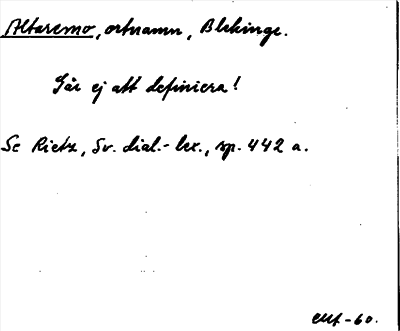 Altaremo, ortnamn, Blekinge.
Går ej att definiera!
Se Rietz, Sv. dial.-lex., sp. 442 a.
-60.